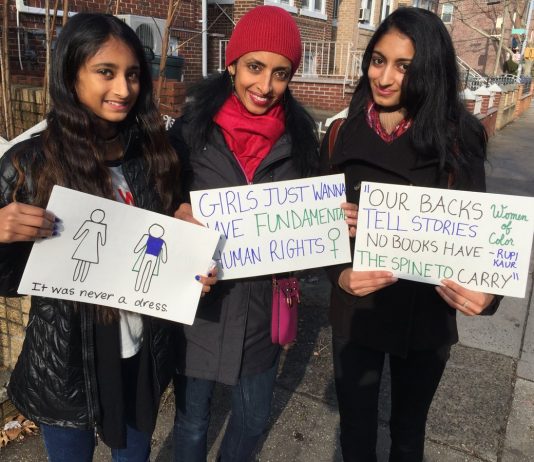 It was never a dress.
GIRLS JUST WANNA
HAVE FUNDAMENTAL
HUMAN RIGHTS ♀
"OUR BACKS
TELL STORIES
NO BOOKS HAVE
THE SPINE TO CARRY"
Women
of
Color
- RUPI
KAUR